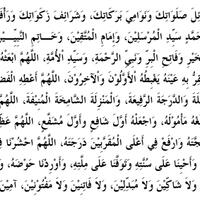 ئِلَ صَلَوَاتِكَ وَنَوَامِيَ بَرَكَاتِكَ، وَشَرَائِفَ زَكَوَاتِكَ وَرَأْفَ
حَمَّدٍ سَيِّدِ الْمُرْسَلِينَ، وَإِمَامِ الْمُتَّقِينَ، وَخَاتِمِ النَّبِيِّينَ
خَيْرِ وَفَاتِحِ الْبِرِّ وَنَبِيِّ الرَّحْمَةِ، وَسَيِّدِ الْأُمَّةِ، اللَّهُمَّ ابْعَثْهُ
قِرُّ بِهِ عَيْنَهُ يَغْبِطُهُ الْأَوَّلُونَ وَالْآخِرُونَ، اللَّهُمَّ أَعْطِهِ الْفَضْ
لَةَ وَالدَّرَجَةَ الرَّفِيعَةَ، وَالْمَنْزِلَةَ الشَّامِخَةَ الْمُنِيفَةَ، اللَّهُمَّ أَ
غْهُ مَأْمُولَهُ، وَاجْعَلْهُ أَوَّلَ شَافِعٍ وَأَوَّلَ مُشَفَّعٍ، اللَّهُمَّ عَظِّ
جَّتَهُ وَارْفَعْ فِي أَعْلَى الْمُقَرَّبِينَ دَرَجَتَهُ، اللَّهُمَّ احْشُرْنَا فِ
وَأَحْيِنَا عَلَى سُنَّتِهِ وَتَوَفَّنَا عَلَى مِلَّتِهِ، وَأَوْرِدْنَا حَوْضَهُ، وَ
وَلَا شَاكِّينَ وَلَا مُبَدِّلِينَ، وَلَا فَاتِنِينَ وَلَا مَفْتُونِينَ، آمِينَ